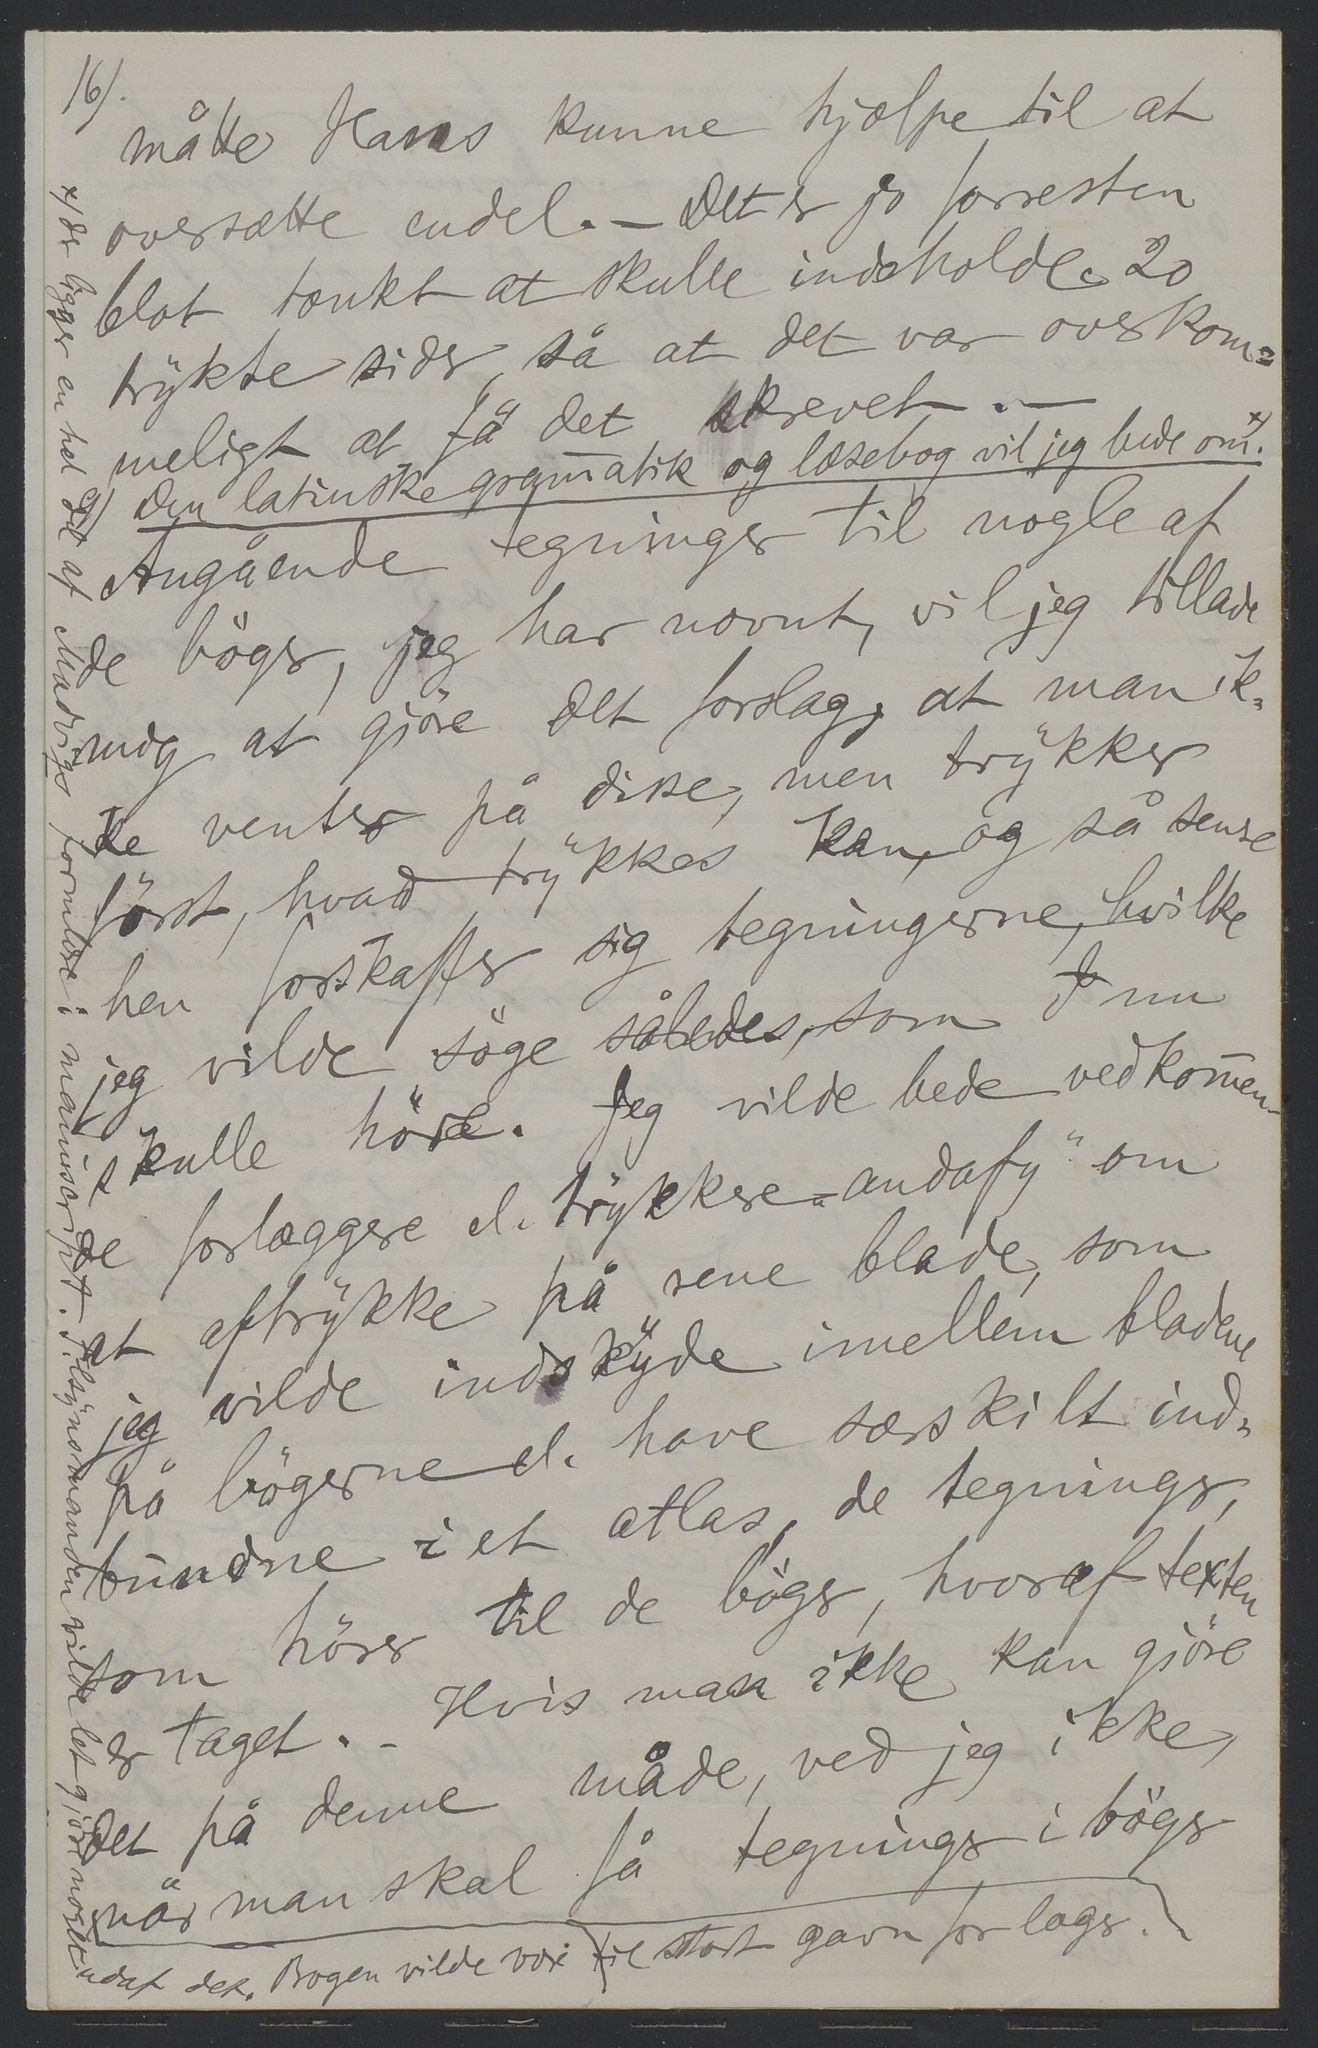 16/.
måtte Hans kunne hjælpe til at
oversætte endel. – Det er jo forresten
blot tænkt at skulle indeholde 20
trÿkte sider, så at det var overkom=
meligt at få det skrevet. —
Den latinske gram̅atik og læsebog vil jeg bede om x/.
Angående tegninger til nogle af
de böger, jeg har nævnt, vil jeg tillade
mig at gjöre det forslag, at man ik=
ke venter på disse, men trÿkker
först, hvad trÿkkes kan, og så senere
hen forskaffer sig tegningerne, hvilke
jeg vilde söge således, som I nu
skulle höre. Jeg vilde bede vedkom̅en-
de forlæggere el. trÿkkere „andafy“ om
at aftrÿkke på rene blade, som
jeg vilde indskÿde imellem bladene
på bögerne el. have særskilt ind=
bundne i et atlas, de tegninger,
som hörer til de böger, hvoraf texten
er taget. – Hvis man ikke kan gjöre
det på denne måde, ved jeg ikke,
når man skal få tegninger i böger
x/ der ligger en hel del af Madvigs formlære i manuscript. Tilsÿnsmanden vilde let gjöre noget
udaf det. Bogen vilde være til stort gavn for læger.